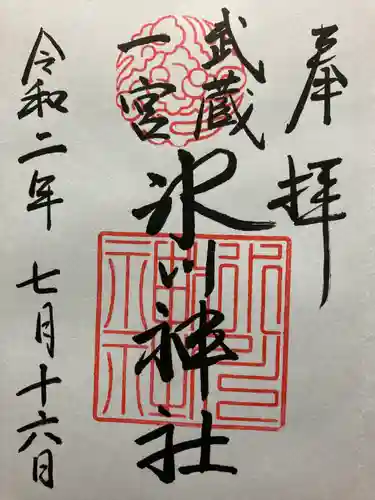 奉拝
武蔵
一宮
氷川神社
令和二年七月十六日
氷川
神社